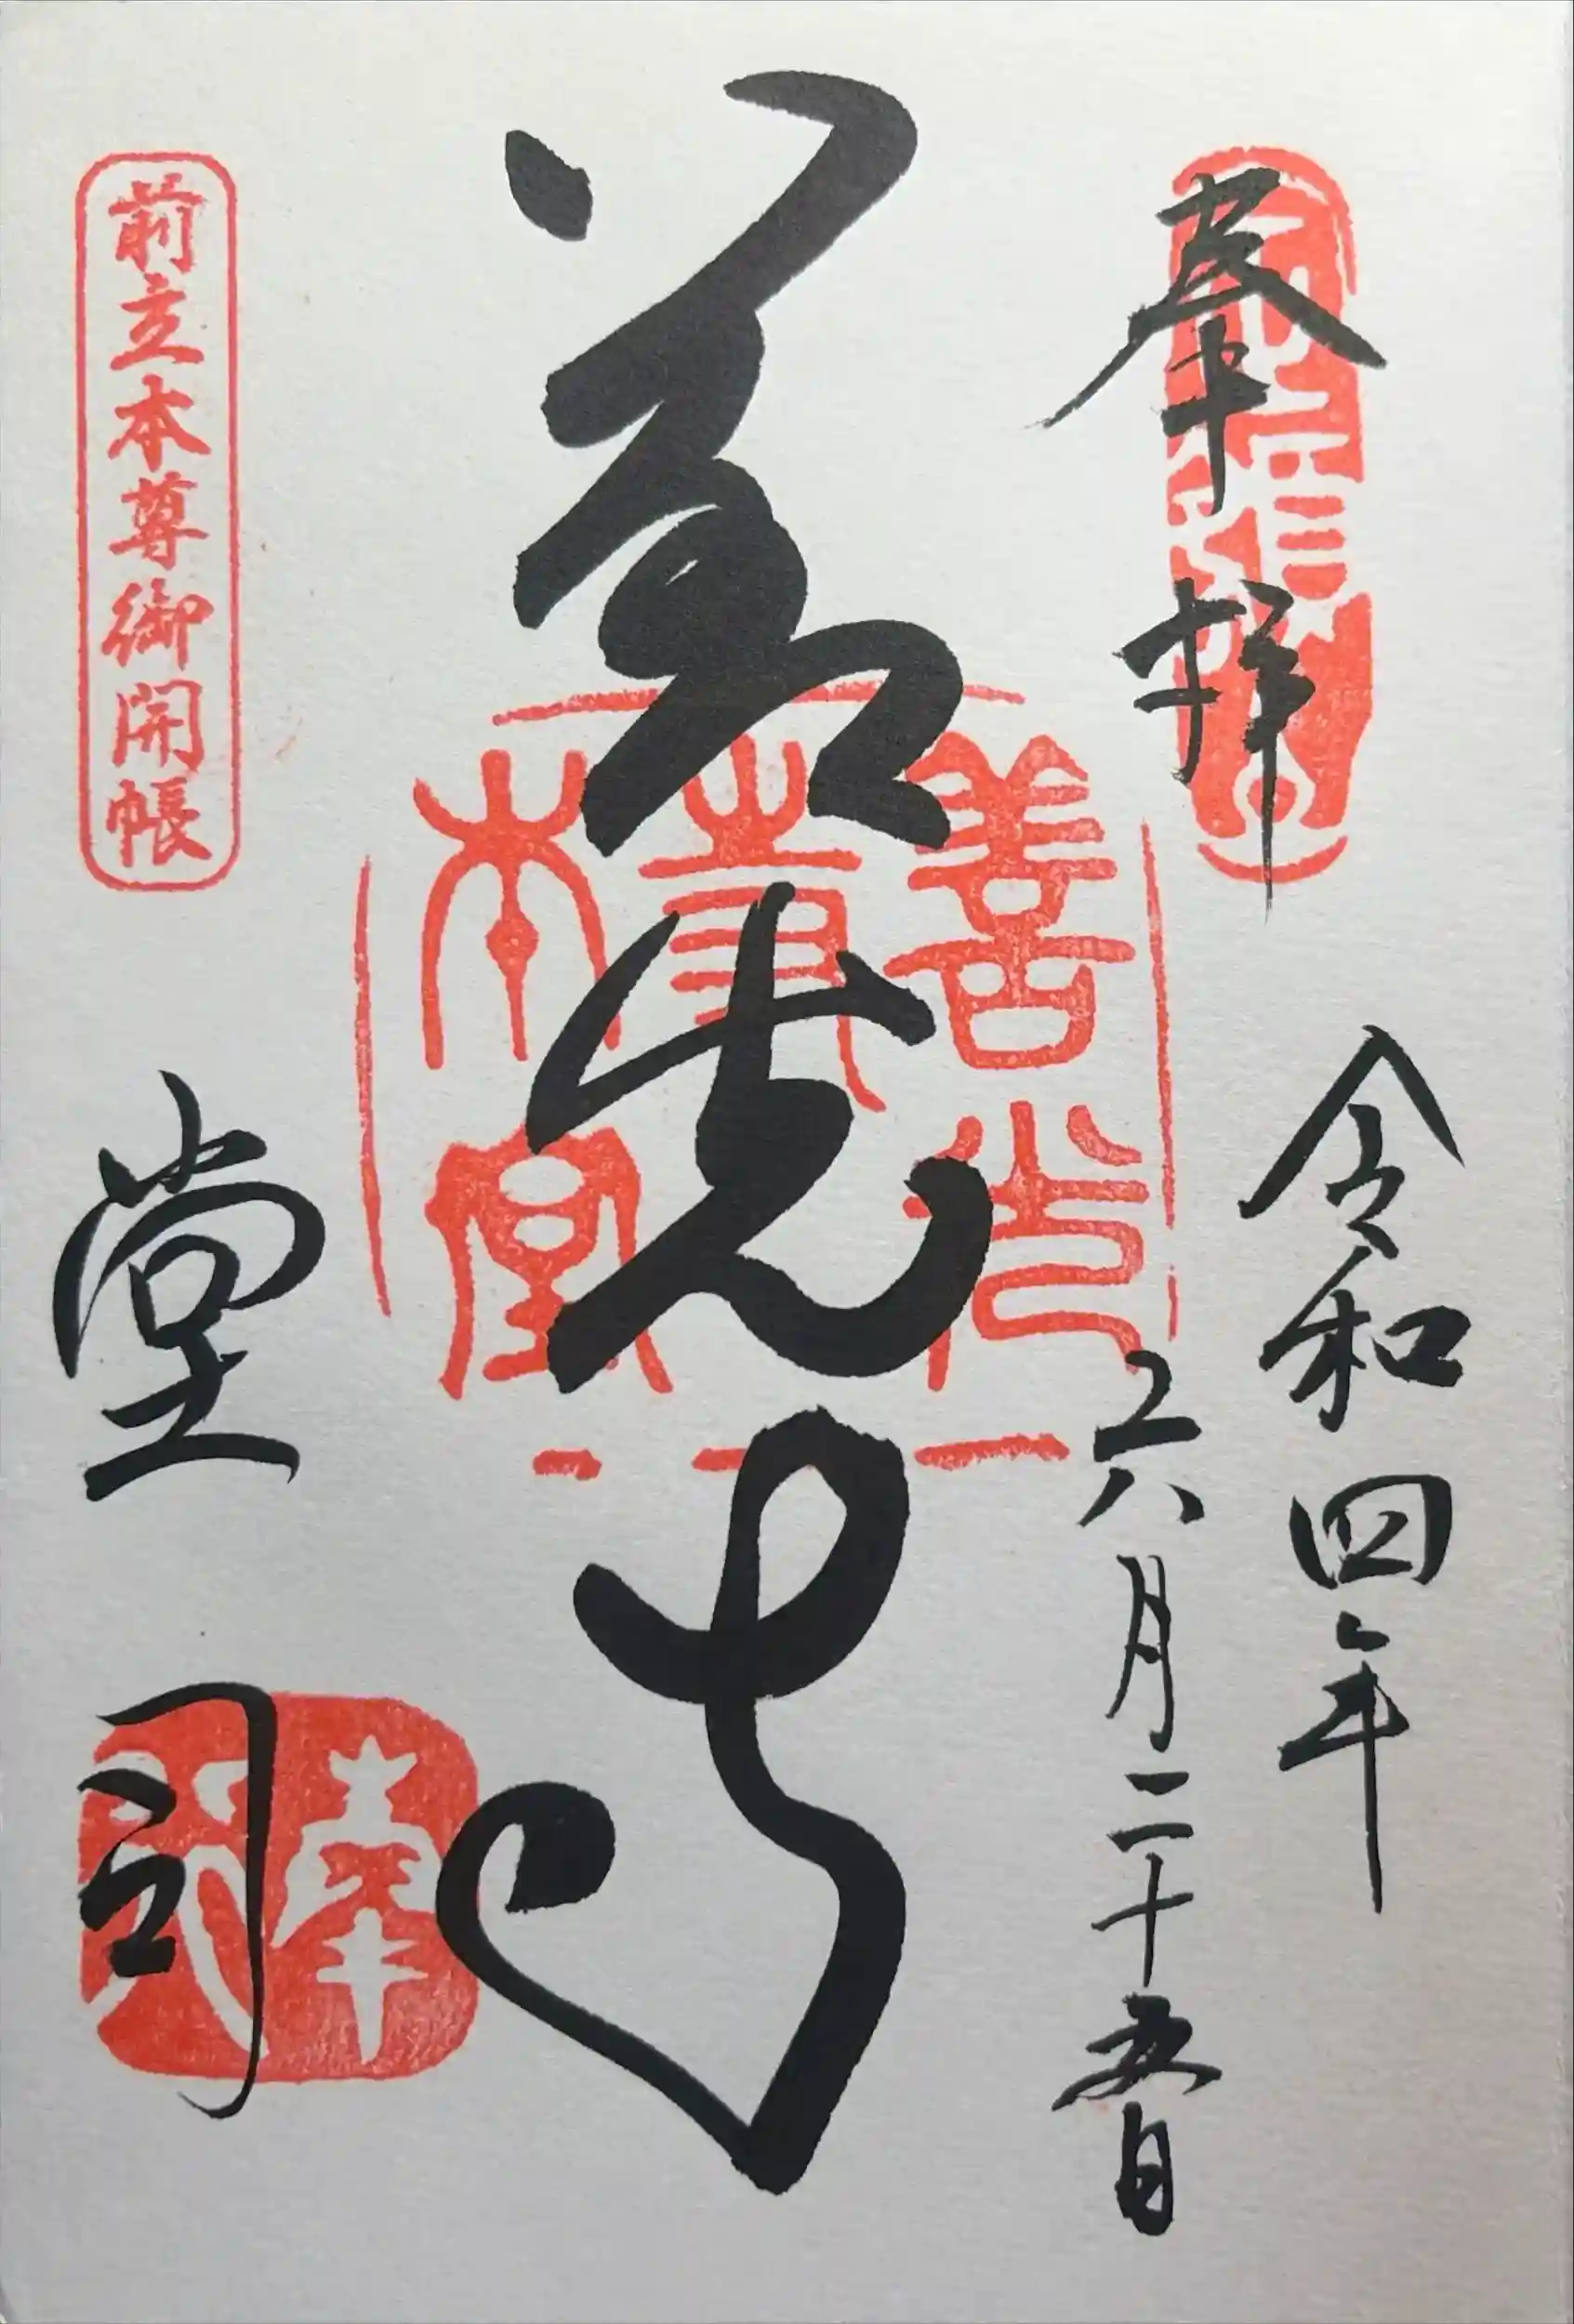 奉拝
令和四年
六月二十五日
善光寺
善光
本堂
堂司
前立本尊御開帳